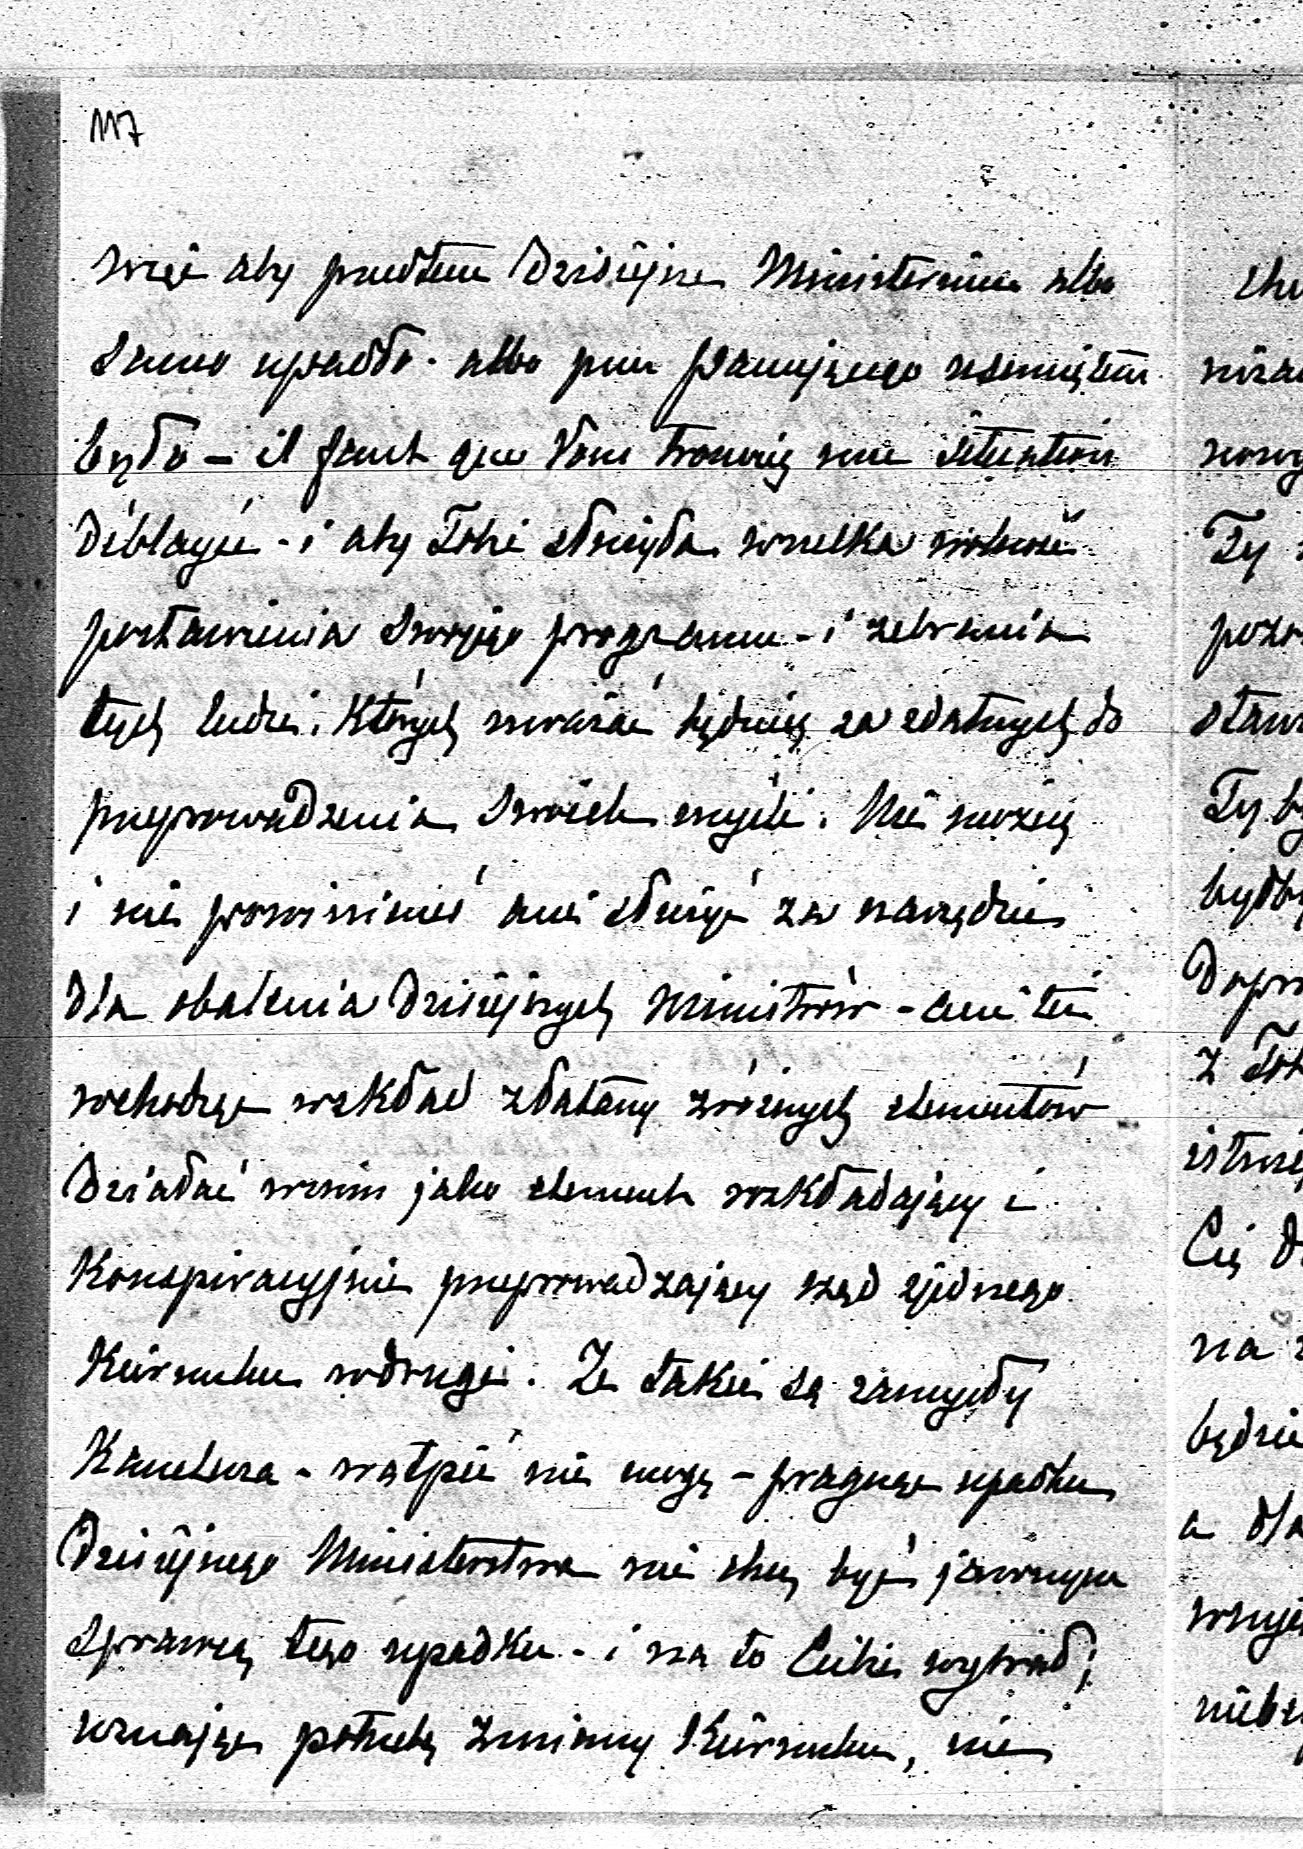 117
więc aby przedtem Dzisiejsze Ministerium albo
samo upadło - albo przez Panującego usuniętem
było - il faut que Vous trouviez une situation
déblayée - i aby Tobie służyła wszelka wolność
postawienia Swojego programu - i zebrania
tych ludzi, których uważać będziesz za zdatnych do
przeprowadzenia Swoich myśli. Nie możesz
i nie powinieneś ani służyć za narzędzie
dla obalenia Dzisiejszych Ministrów - ani też
wchodząc wskład zlatany zróżnych elementów
Działać wnim jako element rozkładający i
Konspiracyjnie przeprowadzający rząd zjednego
Kierunku wdrugi. Że takie są zamysły
Kanclerza - wątpić nie mogę - pragnąc upadku
Dzisiejszego Ministerstwa nie chce być jawnym
sprawcą tego upadku - i na to Ciebie wybrał;
uznając potrzebę zmiany Kierunku, nie
Ty
Ty
Cię
na
będzie
a dla